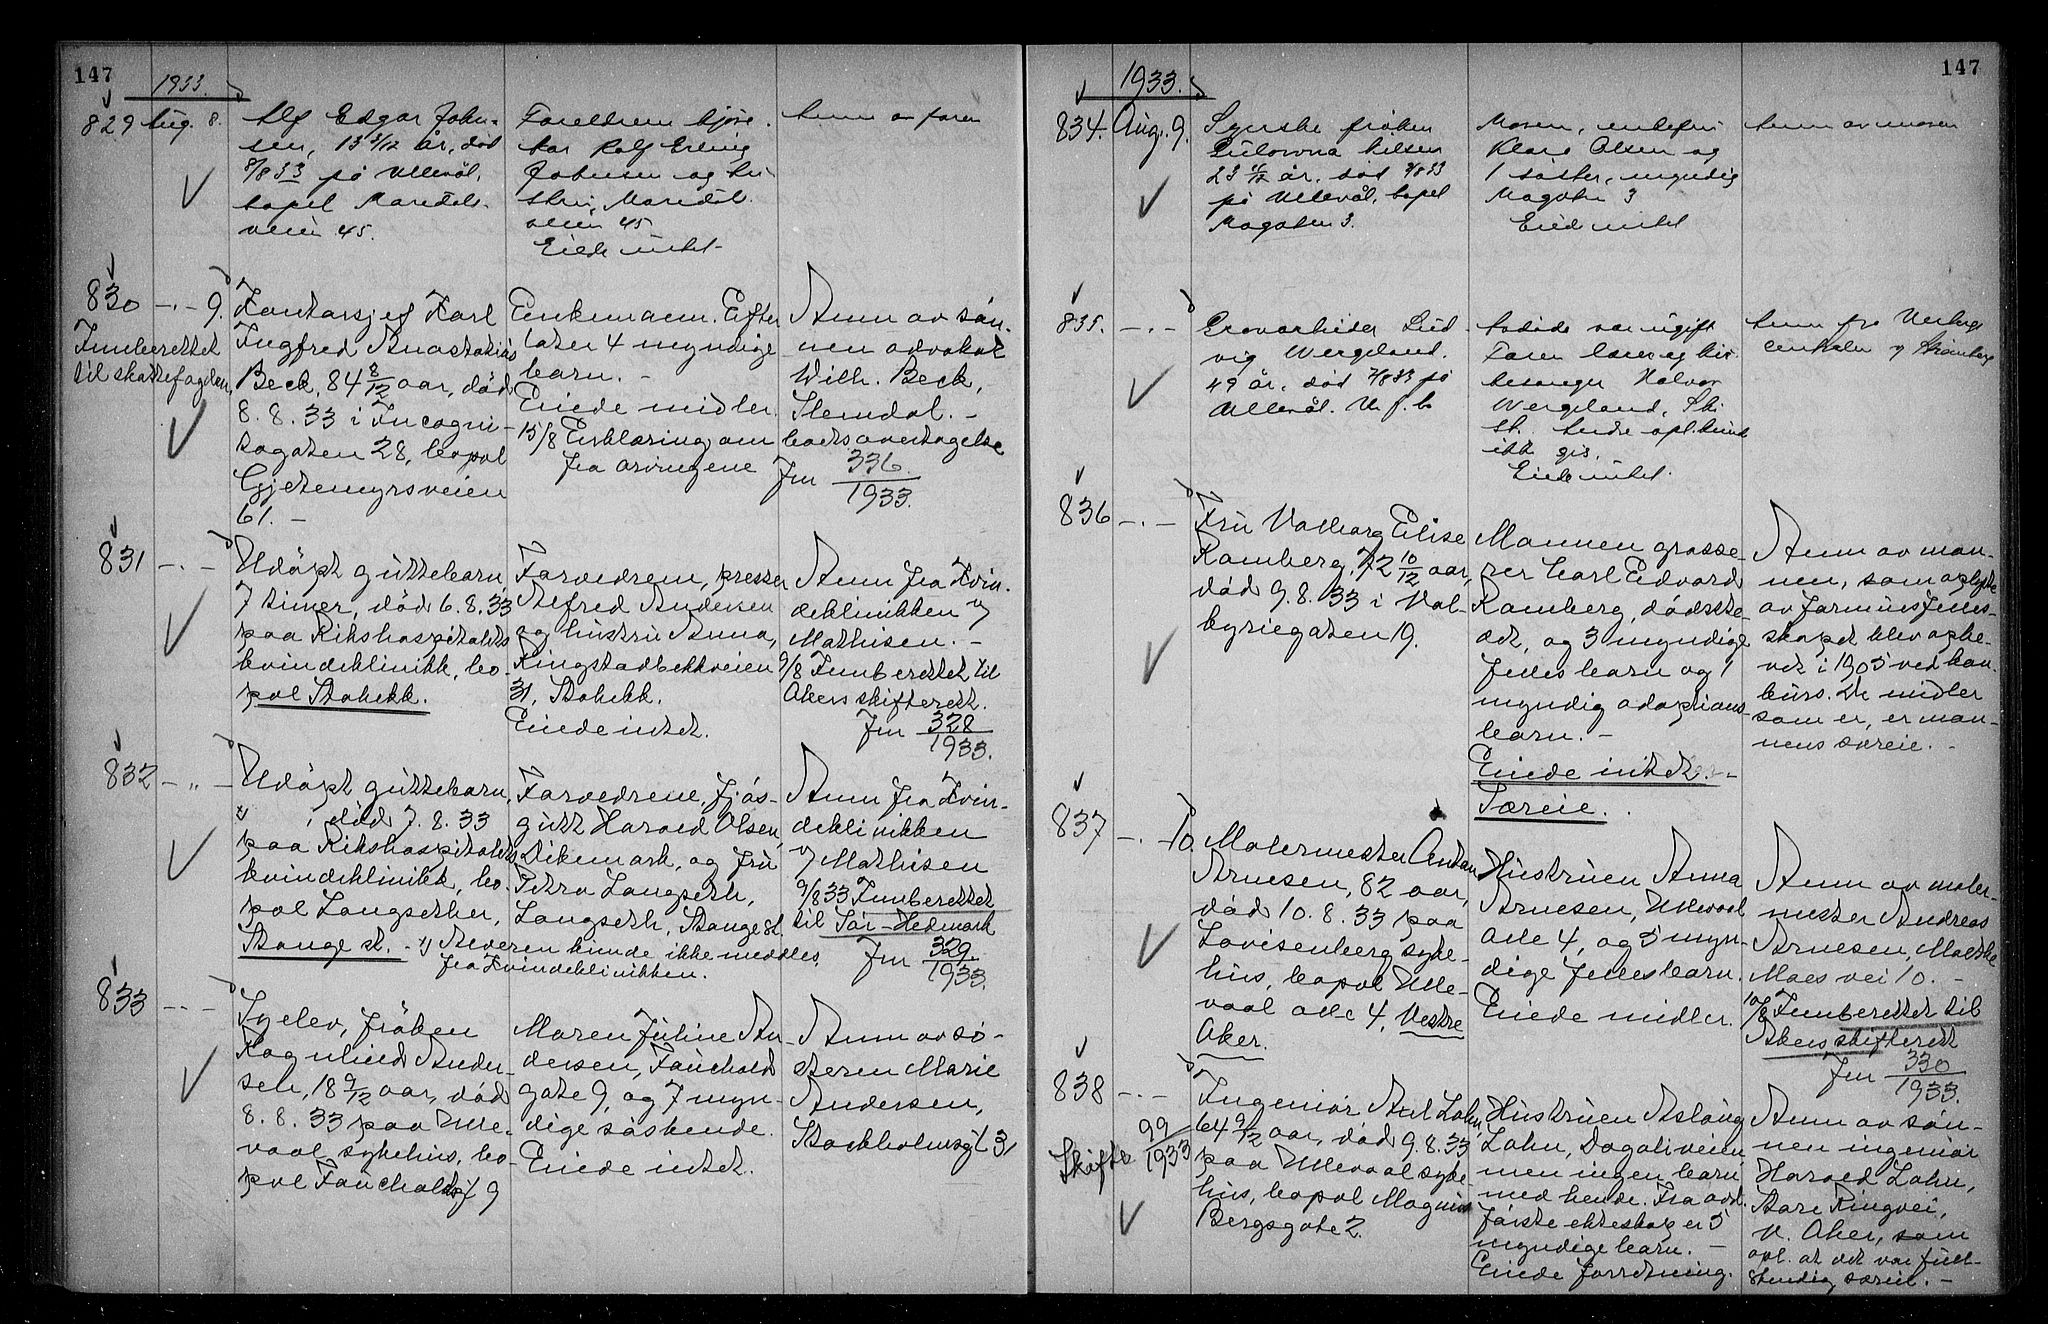 147
1933.
829 Aug. 8.
Alf Edgar John-
sen, 13 3/12 år, død
8/8 33 på Ullevål,
bopel Maridals-
veien 45.
Foreldrene
Rolf Erling
Johnsen og hu-
stru, Maridals-
veien 45
Eiede intet
Anm av faren
830 -.- 9.
Innberettet
til skattefogden.
Kontorsjef Karl
Ingfred Anastasius
Beck, 84 8/12 aar, død
8.8.33 i Incogni-
togaten 28, bopel
Gjetemyrsveien
61. -
Enkemann. Efter-
later 4 myndige
barn. -
Eiede midler.
15/8 Erklæring om boets overtagelse
fra arvingene Jnr 336/1933.
Anm av søn-
nen advokat
Wilh. Beck,
Slemdal. -
831 -.-
Udöpt guttebarn
7 timer, død 6.8.33
paa Rikshospitalets
kvindeklinikk, bo-
pel Stabekk.
Forældrene, presser
Alfred Andersen
og hustru Anna,
Ringstadbekkveien
31, Stabekk.
Eiede intet.
Anm fra Kvin-
deklinikken v/
Mathisen. -
9/8 Innberettet til
Akers skifterett.
Jnr 328/1933.
832 -"-
Udöpt guttebarn,
x) , død 7.8.33
paa Rikshospitalets
kvindeklinikk, bo-
pel Langsether,
Stange st. - x) Alderen kunde ikke meddeles
fra Kvindeklinikken.
Forældrene, fjøs-
gutt Harald Olsen,
Dikemark, og fru
Petra Langseth,
Langseth, Stange st.
Anm fra Kvin-
deklinikken
v/ Mathisen
9/8 33 Innberettet
til Sör-Hedmark
Jnr 329/1933.
833 -.-
Syelev, frøken
Ragnhild Ander-
sen, 18 9/12 aar, død
8.8.33 paa Ulle-
vaal sykehus, bo-
pel Fauchaldsgt 9
Moren Juline An-
dersen, Fauchalds
gate 9, og 7 myn-
dige søskende.
Eiede intet.
Anm av sø-
steren Marie
Andersen,
Stockholmsgt 31
147
1933.
834. Aug. 9.
Syerske frøken
Nilsen
23 år, død 7/8 33
på Ullevål, bopel
Mogaten 3.
Moren,
Klara Olsen og
1 søster, myndig
Mogaten 3
Eied intet
Anm av moren
835. -.-
Grovarbeider Lud-
vig Wergeland.
49 år, død 7/8 33 på
Ullevål. U. f. b.
Avdøde var ugift
Faren lærer og kir-
kesanger Halvor
Wergeland, Ski
st. Andre opl. kunde
ikke gis.
Eiede intet.
Anm fra
centralen v/ Strømberg
836 -.-
Fru Valborg Elise
Ramberg, 72 10/12 aar,
død 9.8.33 i Val-
kyriegaten 19.
Mannen grosse-
rer Carl Edvard
Ramberg, dødsste-
det, og 3 myndige
fellesbarn og 1
myndig adoptivs-
barn. -
Eiede intet. -
Særeie.
Anm av man-
nen, som oplyste
av formuesfelles-
skapet blev ophe-
vet i 1905 ved kon-
kurs. De midler
som er, er man-
nens særeie. -
837 -.- 10.
Malermester Anton
Arnesen, 82 aar,
død 10.8.33 paa
Lovisenberg syke-
hus, bopel Ulle-
vaal alle 4, Vestre
Aker.
Hustruen Anna
Arnesen, Ullevaal
alle 4, og 5 myn-
dige fellesbarn.
Eiede midler.
Anm av maler-
mester Andreas
Arnesen, Moltke
Moes vei 10. -
10/8 Innberettet til
Akers skifterett
Jnr 330/1933.
838 -.-
Skifte 99/1933
Ingeniør Axel Lahn,
64 9/12 aar, død 9.8.33
paa Ullevaal syke-
hus, bopel Magnus
Bergsgate 2.
Hustruen Aslaug
Lahn, Dagaliveien
men ingen barn
med hende. Fra avd.
første ekteskap er 5
myndige barn. -
Eiede forretning.
Anm av søn-
nen ingeniør
Harald Lahn,
Store Ringvei,
V. Aker, som
opl. at det var full-
stendig særeie. -